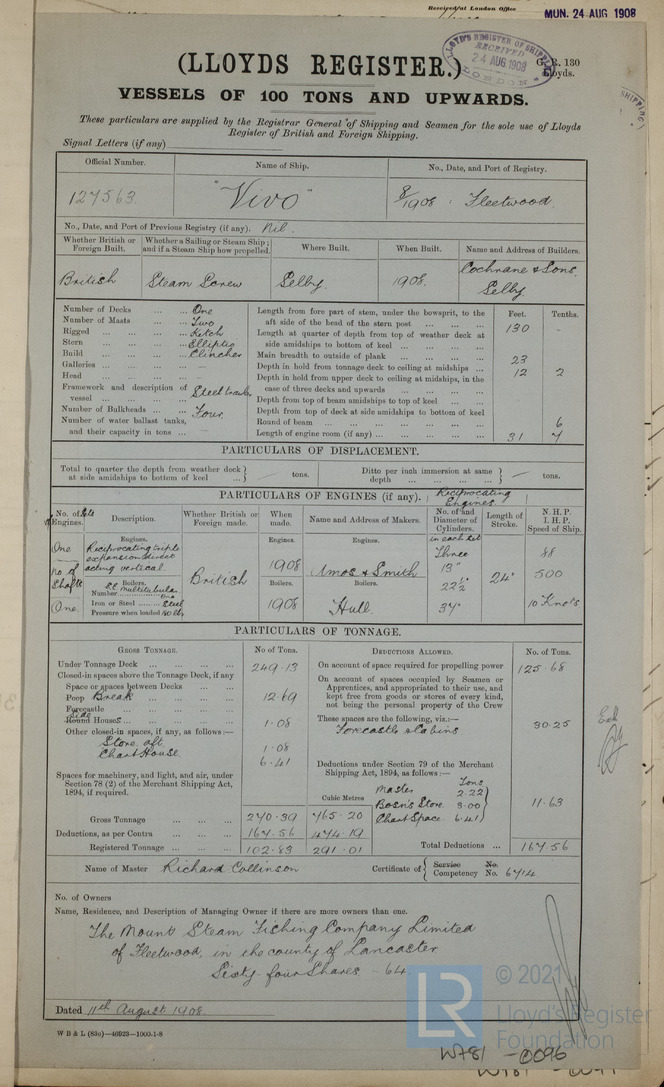 Received at London Office
MUN. 24 AUG 1908
LLOYD'S REGISTER OF SHIPPING
RECEIVED
24 AUG. 1908
LONDON
SHIPPING
(LLOYDS REGISTER.)
130
Lloyds.
VESSELS OF 100 TONS AND UPWARDS.
These particulars are supplied by the Registrar General of Shipping and Seamen for the sole use of Lloyds
Register of British and Foreign Shipping.
Signal Letters (if any)
Official Number. Name of Ship. No., Date, and Port of Registry.
127563. "Vivo" 8/1908 : Fleetwood.
No., Date, and Port of Previous Registry (if any). Nil.
Whether British or Foreign Built. Whether a Sailing or Steam Ship; and if a Steam Ship how propelled. Where Built. When Built. Name and Address of Builders.
British Steam Screw Selby. 1908. Cochrane & Sons. Selby.
Number of Decks ... ... One
Number of Masts ... ... Two
Rigged ... ... ... Ketch
Stern ... ... ... Elliptic
Build ... ... ... Clincher
Galleries ... ... ... –
Head ... ... ... –
Framework and description of vessel ... ... ... Steel
Number of Bulkheads ... ... Four
Number of water ballast tanks, and their capacity in tons ...
Feet. Tenths.
Length from fore part of stem, under the bowsprit, to the aft side of the head of the stern post ... ... ... 130 -
Length at quarter of depth from top of weather deck at side amidships to bottom of keel ... ... ...
Main breadth to outside of plank ... ... ... 23
Depth in hold from tonnage deck to ceiling at midships ... 12 2
Depth in hold from upper deck to ceiling at midships, in the case of three decks and upwards ... ... ...
Depth from top of beam amidships to top of keel ... ...
Depth from top of deck at side amidships to bottom of keel
Round of beam ... ... ... 6
Length of engine room (if any) ... ... ... 31 7
PARTICULARS OF DISPLACEMENT.
Total to quarter the depth from weather deck at side amidships to bottom of keel ... tons.
Ditto per inch immersion at same depth ... ... tons.
PARTICULARS OF ENGINES (if any). Reciprocating Engines.
No. of Sets of Engines. Description. Whether British or Foreign made. When made. Name and Address of Makers. No. of and Diameter of Cylinders. in each set Length of Stroke. N. H. P. I. H. P. Speed of Ship.
Engines. Engines. Engines.
One Reciprocating triple expansion direct acting vertical. British 1908 Amos & Smith Three 13" 88
No of Shafts Boilers. Boilers. Boilers. 22½" 24" 500
Number One
One. Iron or Steel ... Steel 1908 Hull. 37" 10 Knots
Pressure when loaded
PARTICULARS OF TONNAGE.
GROSS TONNAGE. No. of Tons. DEDUCTIONS ALLOWED. No. of Tons.
Under Tonnage Deck ... ... ... 249.13
Closed-in spaces above the Tonnage Deck, if any
Space or spaces between Decks ... ...
Poop Break ... ... 12.69
Forecastle ... ... ...
Side
Round Houses ... ... 1.08
Other closed-in spaces, if any, as follows:—
Store aft 1.08
Chart House 6.41
Spaces for machinery, and light, and air, under Section 78 (2) of the Merchant Shipping Act, 1894, if required.
Cubic Metres
Gross Tonnage ... ... 270.39 765.20
Deductions, as per Contra ... ... 167.56 474.19
Registered Tonnage ... ... 102.83 291.01
On account of space required for propelling power 125.68
On account of spaces occupied by Seamen or Apprentices, and appropriated to their use, and kept free from goods or stores of every kind, not being the personal property of the Crew
These spaces are the following, viz.:— 30.25
Forecastle & Cabins
Deductions under Section 79 of the Merchant Shipping Act, 1894, as follows:— Tons
Master 2.22
Bosn's Store 3.00 11.63
Chart Space 6.41
Total Deductions ... 167.56
Name of Master Richard Collinson Certificate of Service No. Competency No. 6714
No. of Owners
Name, Residence, and Description of Managing Owner if there are more owners than one.
The Mount Steam Fishing Company Limited
of Fleetwood, in the county of Lancaster
Sixty-four Shares - 64
Dated 11th August 1908
W B & L (83o)—46923—1000-1-8
LR
© 2021
Lloyd's Register
Foundation
W781-0096